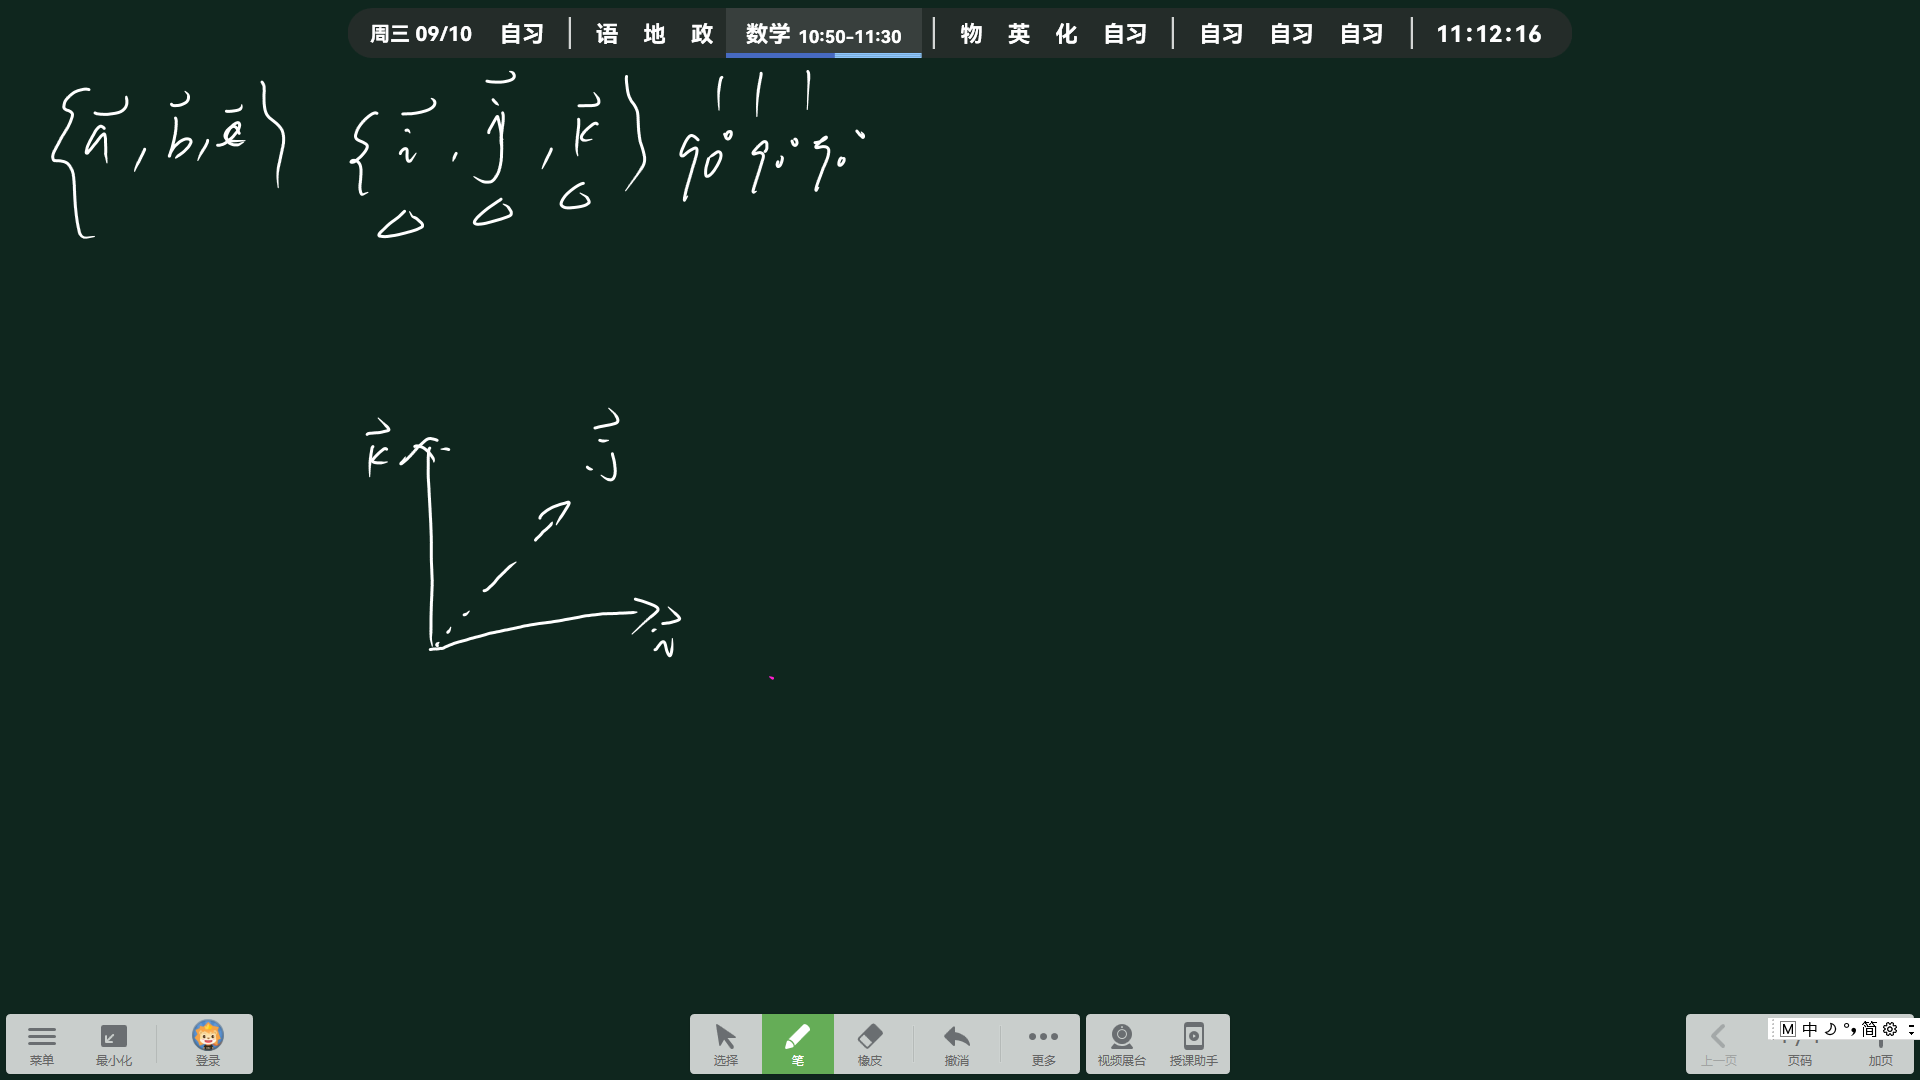 周三 09/10 自习 | 语 地 政 数学 10:50-11:30 | 物 英 化 自习 | 自习 自习 自习 | 11:12:16
{a⃗, b⃗, c⃗} {i⃗, j⃗, k⃗} 1 1 1
90° 90° 90°
k⃗
j⃗
i⃗
菜单 最小化 登录 选择 笔 橡皮 撤消 更多 视频展台 授课助手 上一页 页码 加页
M 中 简